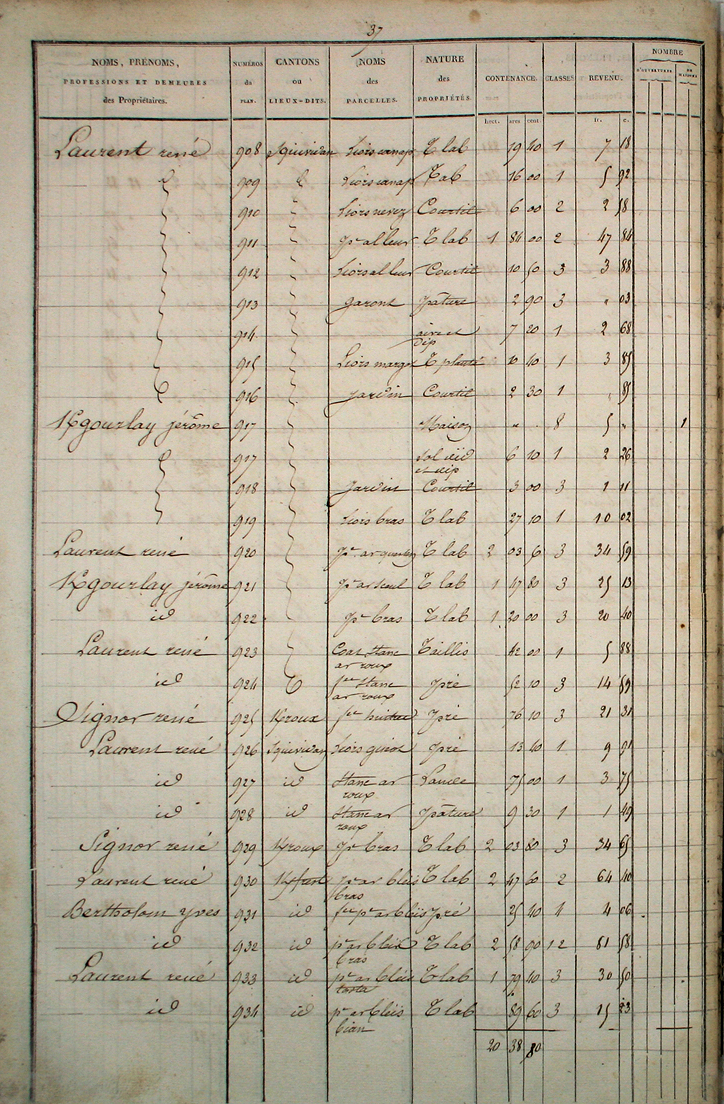 37
NOMS, PRÉNOMS, PROFESSIONS ET DEMEURES des Propriétaires. NUMÉROS du PLAN. CANTONS ou LIEUX-DITS. NOMS des PARCELLES. NATURE des PROPRIÉTÉS. CONTENANCE. CLASSES. REVENU. NOMBRE D'OUVERTURES DE MAISONS
hect. ares cent fr. c.
Laurent rené 908 Liorscanap T lab 19 40 1 7 18
909 Liorscanap T lab 16 00 1 5 92
910 Liorsnevez Courtil 6 00 2 2 58
911 pr alleur T lab 1 84 00 2 47 84
912 Liorsalleur Courtil 10 50 3 3 88
913 garont pature 2 90 3 " 03
914 aire et dép 7 20 1 2 68
915 Liors margot T planté 10 40 1 3 85
916 jardin Courtil 2 30 1 85
Kgourlay jérôme 917 Maison " " 8 5 " 1
917 Sol et dép 6 10 1 2 26
918 jardin Courtil 3 00 3 1 11
919 Liors bras T lab 27 10 1 10 02
Laurent rené 920 T lab 2 03 3 34 59
Kgourlay jérôme 921 T lab 1 47 80 3 25 13
id 922 pr bras T lab 1 20 00 3 20 40
Laurent rené 923 Coat Stanc ar roux Taillis 42 00 1 5 88
id 924 Stanc ar roux pré 52 10 3 14 59
Signor rené 925 Kroux pré 76 10 3 21 31
Laurent rené 926 pré 13 40 1 9 91
id 927 id Stanc ar roux Lande 75 00 1 3 75
id 928 id Stanc ar roux pâture 9 30 1 1 49
Signor rené 929 Kroux pr bras T lab 2 03 80 3 34 65
Laurent rené 930 pr ar bleis bras T lab 2 47 60 2 64 40
Bertholom yves 931 id pr ar bleis pré 25 40 4 4 06
id 932 id pr ar bleis bras T lab 2 58 90 12 81 58
Laurent rené 933 id pr ar bleis T lab 1 79 40 3 30 50
id 934 id pr ar bleis bian T lab 89 60 3 15 23
20 38 80